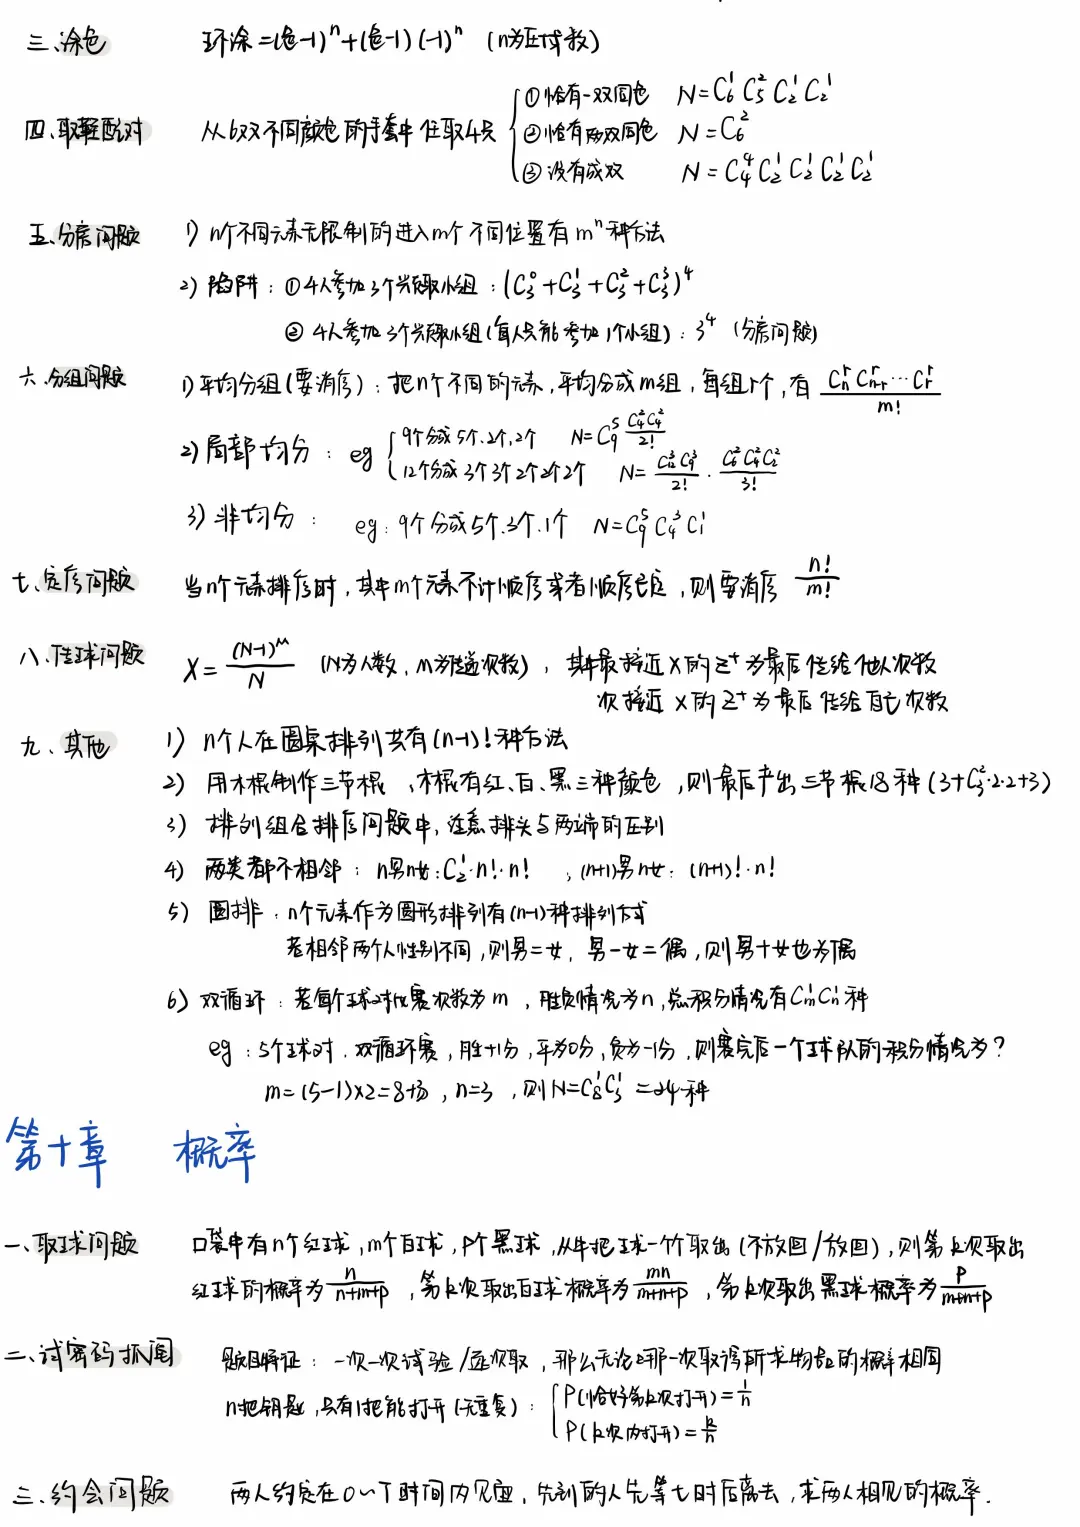 三、涂色 环涂=(色-1)ⁿ+(色-1)(-1)ⁿ (n为区域数)
四、取鞋配对 从6双不同颜色的手套中任取4只
①恰有一双同色 N=C₆¹C₅²C₂¹C₂¹
②恰有两双同色 N=C₆²
③没有成双 N=C₄⁴C₂¹C₂¹C₂¹C₂¹
五、分房问题 1) n个不同元素无限制的进入m个不同位置有mⁿ种方法
2) 陷阱:①4人参加3个兴趣小组:(C₃⁰+C₃¹+C₃²+C₃³)⁴
②4人参加3个兴趣小组(每人只能参加1个小组):3⁴ (分房问题)
六、分组问题 1)平均分组(要消序):把n个不同的元素,平均分成m组,每组r个,有 CₙʳCₙ₋ᵣʳ…Cᵣʳ/m!
2)局部均分:eg 9个分成5个.2个.2个 N=C₉⁵ C₄²C₂²/2!
12个分成3个3个2个2个2个 N=C₁₂³C₉³/2! · C₆²C₄²C₂²/3!
3)非均分: eg:9个分成5个.3个.1个 N=C₉⁵C₄³C₁¹
七、定序问题 当n个元素排序时,其中m个元素不计顺序或者顺序已定,则要消序 n!/m!
八、传球问题 X=(N-1)ᴹ/N (N为人数,M为传递次数),其中最接近X的Z⁺为最后传给他人次数
次接近X的Z⁺为最后传给自己次数
九、其他 1) n个人在圆桌排列共有(n-1)!种方法
2) 用木棍制作三节棍,木棍有红、白、黑三种颜色,则最后产出三节棍18种(3+C₃²·2·2+3)
3) 排列组合排序问题中,注意排头与两端的区别
4) 两类都不相邻:n男n女:C₂¹·n!·n! ,(n+1)男n女:(n+1)!·n!
5) 圆排:n个元素作为圆形排列有(n-1)种排列方式
若相邻两个人性别不同,则男=女,男-女=偶,则男+女也为偶
6) 双循环:若每个球对比赛次数为m,胜负情况为n,总积分情况有Cₘ¹Cₙ¹种
eg:5个球对.双循环赛,胜+1分,平为0分,负为-1分,则赛完后一个球队的积分情况为?
m=(5-1)×2=8场,n=3,则N=C₈¹C₃¹=24种
第十章 概率
一、取球问题 口袋中有n个红球,m个白球,p个黑球,从中把球一个个取出(不放回/放回),则第k次取出
红球的概率为n/n+m+p,第k次取出白球概率为m/m+n+p,第k次取出黑球概率为p/m+n+p
二、试密码抓阄 题目特征:一次一次试验/逐次取,那么无论那一次取得所求物品的概率相同
n把钥匙,只有1把能打开(无重复):P(恰好第k次打开)=1/n
P(k次内打开)=k/n
三、约会问题 两人约定在0~T时间内见面,先到的人先等t时后离去,求两人相见的概率.